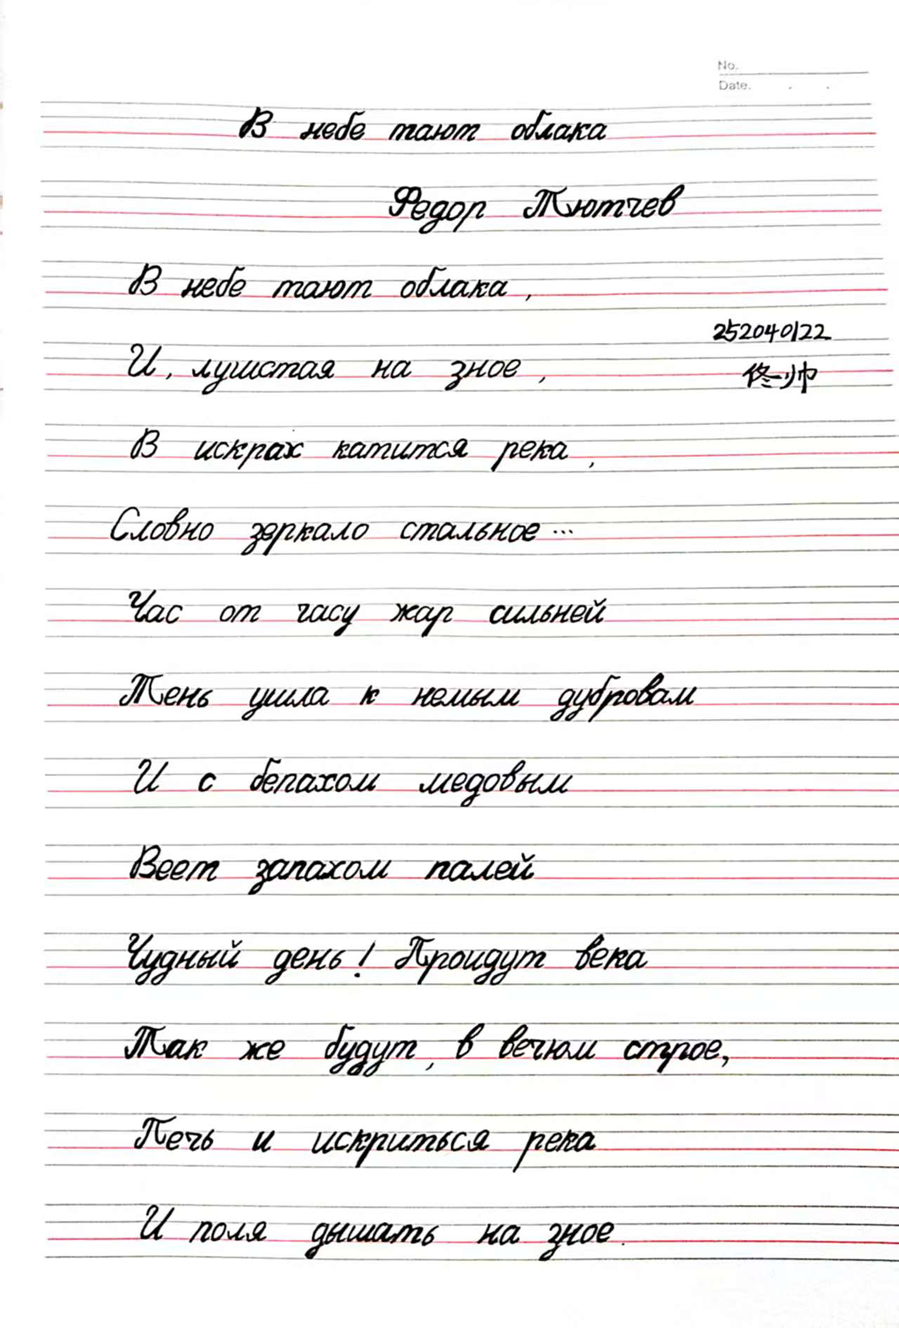 No.
Date.
В небе тают облака
Федор Тютчев
В небе тают облака,
252040122
И, лушстая на зное,
佟帅
В искрах катится река,
Словно зеркало стальное...
Час от часу жар сильней
Тень ушла к немым дубровам
И с бепахом медовым
Веет запахом палей
Чудный день! Проидут века
Так же будут, в вечюм строе,
Печь и искриться река
И поля дышать на зное.